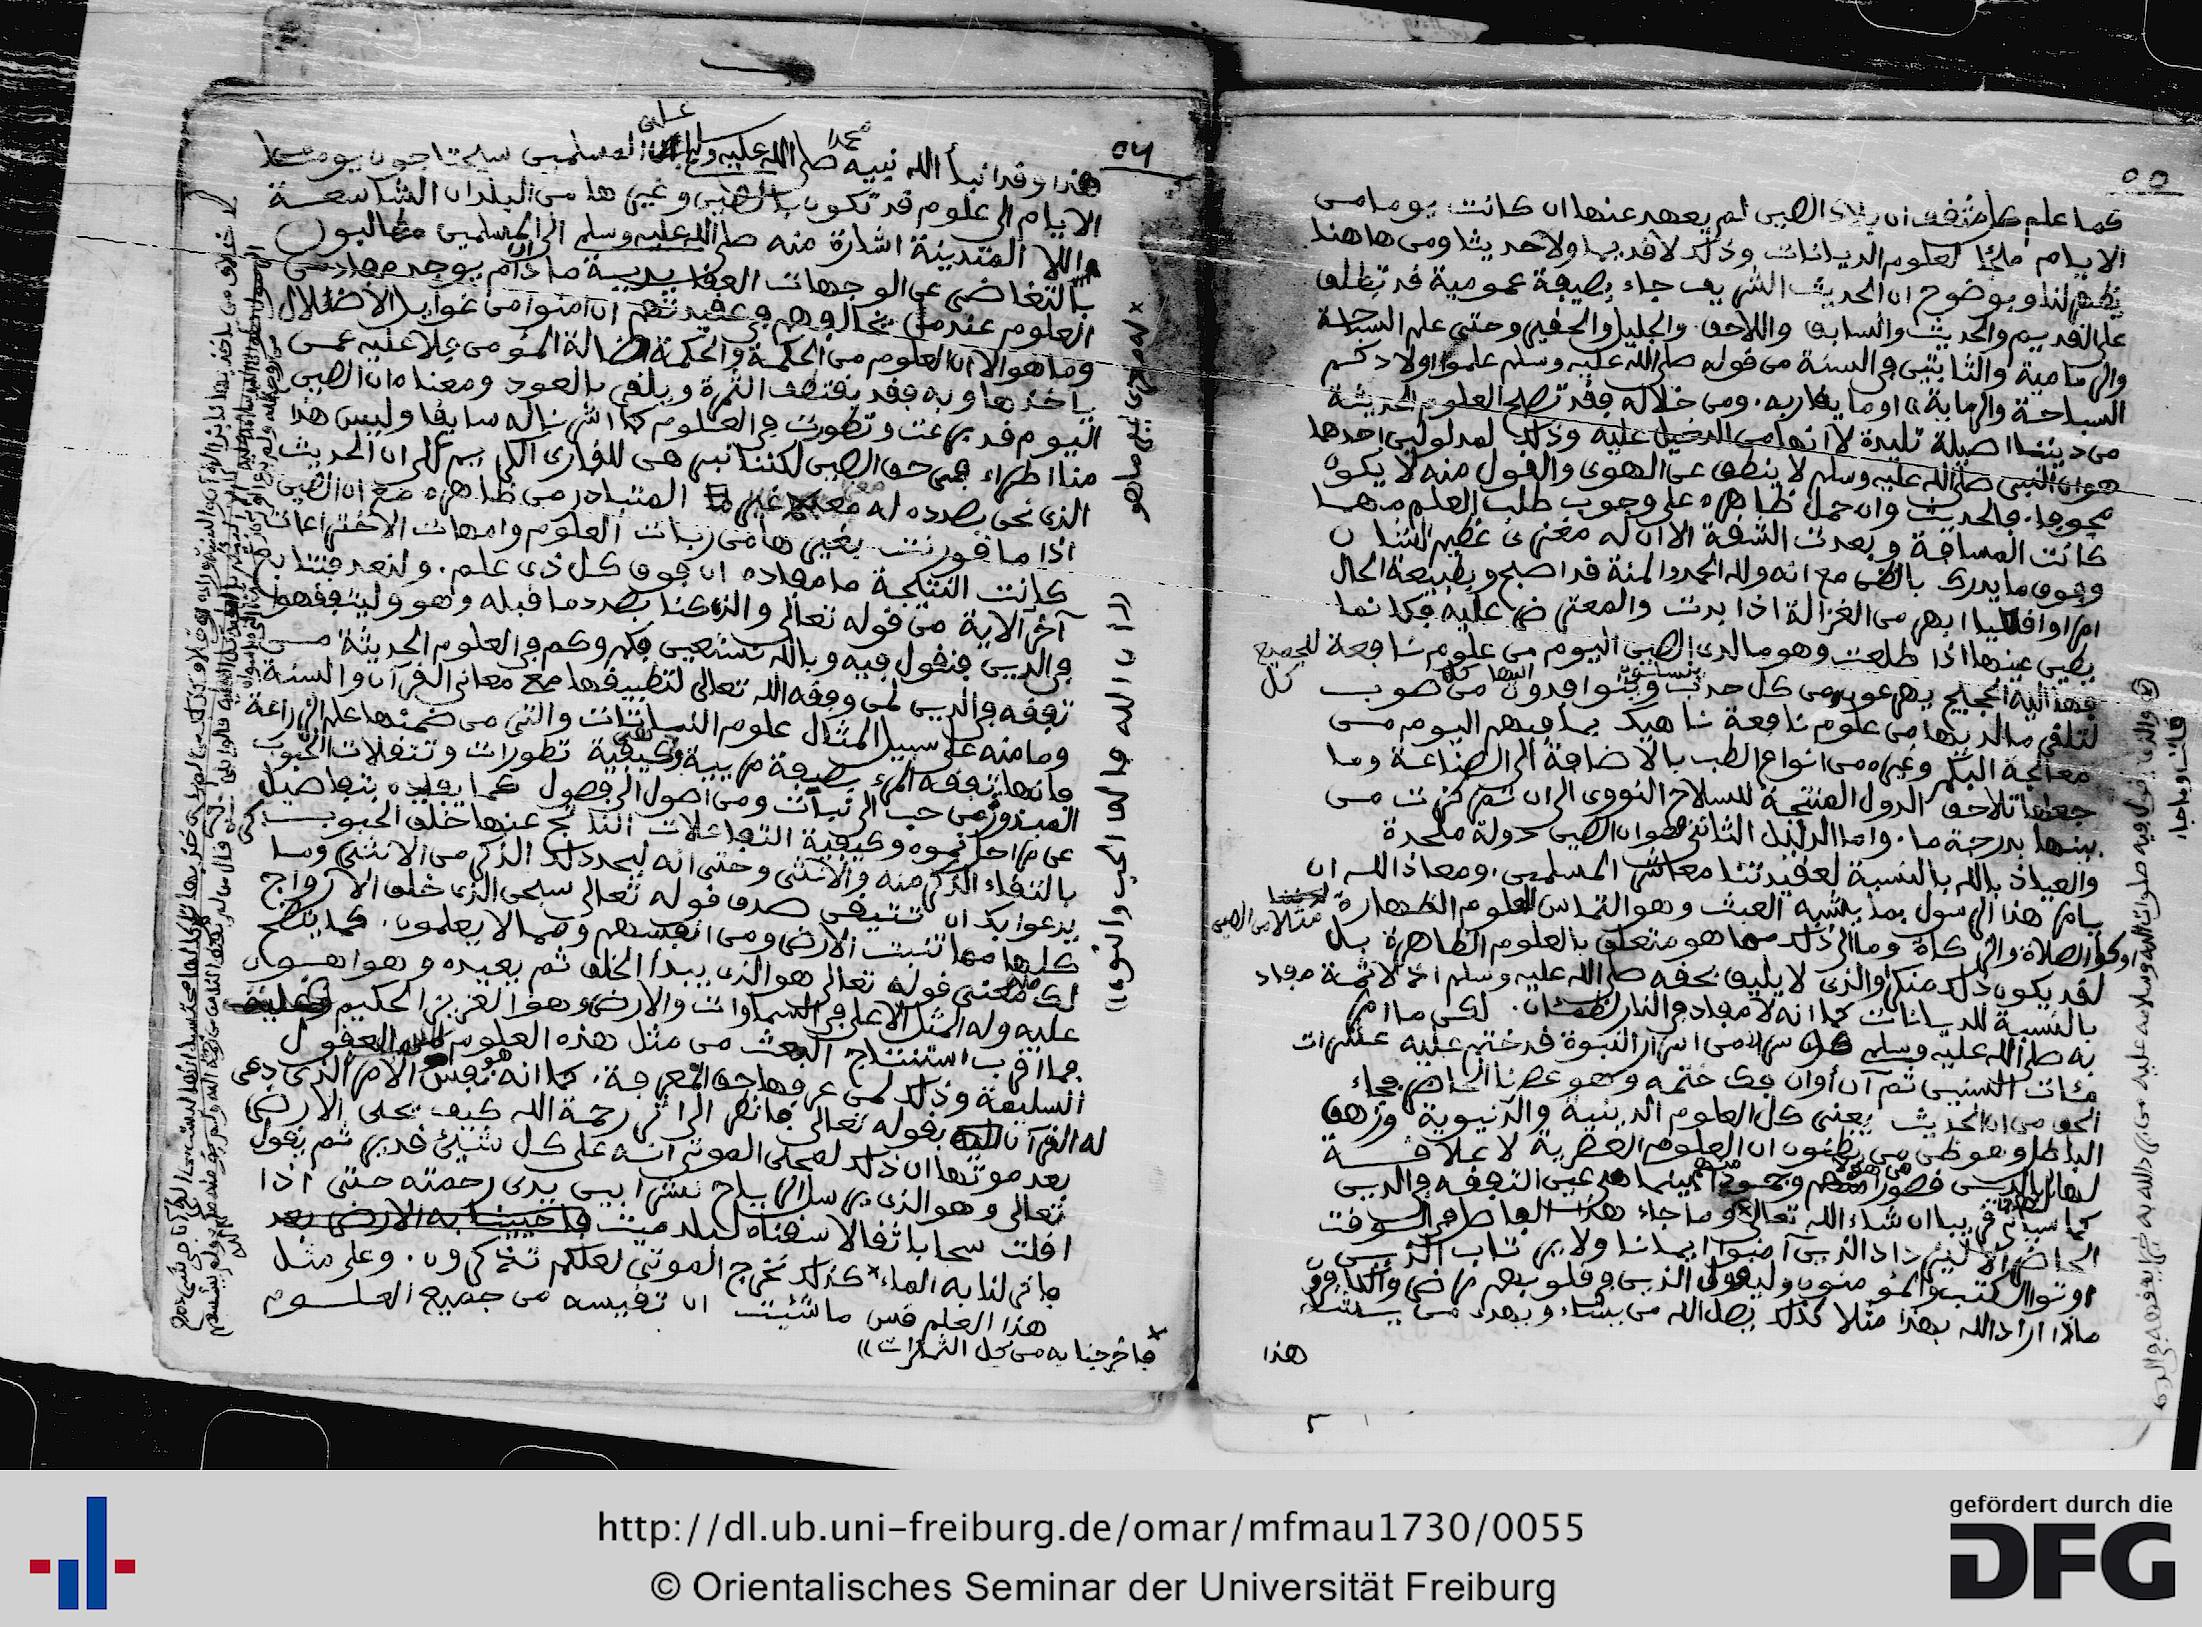 ٥٥
كما علم كل مثقف ان بلاد الصين لم يعهد عنها ان كانت يوما من
الايام ملجئا لعلوم الديانات وذلك لا قديما ولا حديثا ومن ها هنا
يظهر لنا وبوضوح ان الحديث الشريف جاء بصيغة عمومية قد تطلق
على القديم والحديث والسابق واللاحق والجليل والحقير وحتى علم السباحة
والرماية والثابتين في السنة من قوله صلى الله عليه وسلم علموا اولادكم
السباحة والرماية او ما يقاربه. ومن خلاله فقد تصلح العلوم الحديثة
من ديننا اصيلة تليدة لا انها من الدخيل عليه وذلك لمدلولين احدها
هو ان النبي صلى الله عليه وسلم لا ينطق عن الهوى والقول منه لا يكون
فجوجا. فالحديث وان حمل ظاهره على وجوب طلب العلم مهما
كانت المسافة وبعدت الشقة الا ان له مغزى عظيم الشان
وفوق ما يدرك بالظن مع انه ولله الحمد والمنة قد اصبح وبطبيعة الحال
امرا واقعيا ابهر من الغزالة اذا بدت والمعترض عليه فكانما
بطين عينها اذا طلعت وهو ما لدى الصين اليوم من علوم نافعة للجميع
فهذا اليه الجميع يهرعون ومن كل حدب ويتوافدون من صوب كل
ينساقون اليها كل
لتلقي ما لديها من علوم نافعة ناهيك بما فيهم اليوم من
معالجة البكم وغيره من انواع الطب بالاضافة الى الصناعة وما
جعلها تلاحق الدول المنتجة للسلاح النووي الى ان تمركزت من
بينها بدرجة ما. واما الدليل الثاني فهو ان الصين دولة ملحدة
والعياذ بالله بالنسبة لعقيدتنا معاشر المسلمين. ومعاذ الله ان
يامر هذا الرسول بما يشبه العبث وهو التماس العلوم الطهارة مثلا من الصين
او كالصلاة والزكاة وما الى ذلك مما هو متعلق بالعلوم الظاهرة بل
لقد يكون ذلك منكرا والذي لا يليق بحقه صلى الله عليه وسلم اذ لا ثمة مفاد
بالنسبة للديانات كما انه لا مفاد في النار لظمئان. لكن ما امر
به صلى الله عليه وسلم كان سرا من اسرار النبوة قد ختم عليه عشرات
مئات السنين ثم آن أوان فك ختمه وهو عصرنا الحاضر فجاء
الحق من ان الحديث يعني كل العلوم الدينية والدنيوية وزهق
الباطل وهو ظن من يظنون ان العلوم العصرية لا علاقة
لها بالدين قصورا منهم وجمودا بينما هي عين التفقه في الدين
كما سياتي قريبا ان شاء الله تعالى وما جاء هذا العاطر في الوقت
الحاضر الا ليزداد الذين آمنوا ايمانا ولا يرتاب الذين
اوتوا الكتب والمؤمنون وليقول الذين في قلوبهم مرض والكافرون
ماذا اراد الله بهذا مثلا كذلك يضل الله من يشاء ويهدي من يشاء
هذا
٥٦
هذا وقد انبأ الله نبيه محمدا صلى الله عليه وسلم على ان المسلمين سيحتاجون يوما
الايام الى علوم قد تكون بالصين وغيرها من البلدان الشاسعة
واللا المتدينة اشارة منه صلى الله عليه وسلم الى ان المسلمين مطالبون
بالتغاضي عن الوجهات العقايدية ما دام يوجد مفاد من
العلوم عند من يخالفوهم في عقيدتهم ان امنوا من غوايل الاضلال
وما هو الا ان العلوم من الحكمة والحكمة ضالة المؤمن فلا عليه عمن
ياخذها وبه فقد يقتطف الثمرة ويلقي بالعود ومعناه ان الصين
اليوم قد برعت وتطورت في العلوم كما اشرنا له سابقا وليس هذا
منا اطراء في حق الصين لكننا نبرهن للقارئ الكريم على ان الحديث
الذي نحن بصدده له معنى غير المتبادر من ظاهره مع ان الصين
اذا ما قورنت بغيرها من ربات العلوم وامهات الاختراعات
كانت النتيجة ما مفاده ان فوق كل ذي علم. ولنعد فنتابع
آخر الآية من قوله تعالى والذي كنا بصدد ما قبله وهو وليتفقهوا
في الدين فنقول فيه وبالله نستعين فكم وكم في العلوم الحديثة من
تفقه في الدين لمن وفقه الله تعالى لتطبيقها مع معاني القرآن والسنة
وما منه على سبيل المثال علوم النباتات والتي من ضمنها علم الزراعة
فانها تفقه المرء بصيغة مريبة وكيفية تطورات وتنقلات الحبوب
المبذورة من حب الى نبات ومن اصول الى فصول كما يفيده بتفاصيل
عن مراحل نموه وكيفية التفاعلات الناتج عنها خلق الحبوب
بالتقاء الذكر منه والانثى وحتى انه ليحدد لك الذكر من الانثى وما
يدعوا بك ان تتيقن صدق قوله تعالى سبحن الذي خلق الازواج
كلها مما تنبت الارض ومن انفسهم ومما لا يعلمون. كما يتضح
لك معنى قوله تعالى هو الذي يبدأ الخلق ثم يعيده وهو اهون
عليه وله المثل الاعلى في السماوات والارض وهو العزيز الحكيم
فما اقرب استنتاج البعث من مثل هذه العلوم للعقول
السليمة وذلك لمن عرفها حق المعرفة. كما انه هو نفس الامر الذي دعى
له القرآن بقوله تعالى فانظر الى اثر رحمة الله كيف يحي الارض
بعد موتها ان ذلك لمحي الموتى انه على كل شيئ قدير ثم يقول
تعالى وهو الذي يرسل الرياح نشرا بين يدي رحمته حتى اذا
اقلت سحابا ثقالا سقناه لبلد ميت فاحيينا به الارض بعد
فانزلنا به الماء × كذلك نخرج الموتى لعلكم تذكرون. وعلى مثل
هذا العلم قس ما شئت ان تقيسه من جميع العلوم
× فاخرجنا به من كل الثمرات))
http://dl.ub.uni-freiburg.de/omar/mfmau1730/0055
© Orientalisches Seminar der Universität Freiburg
gefördert durch die
DFG